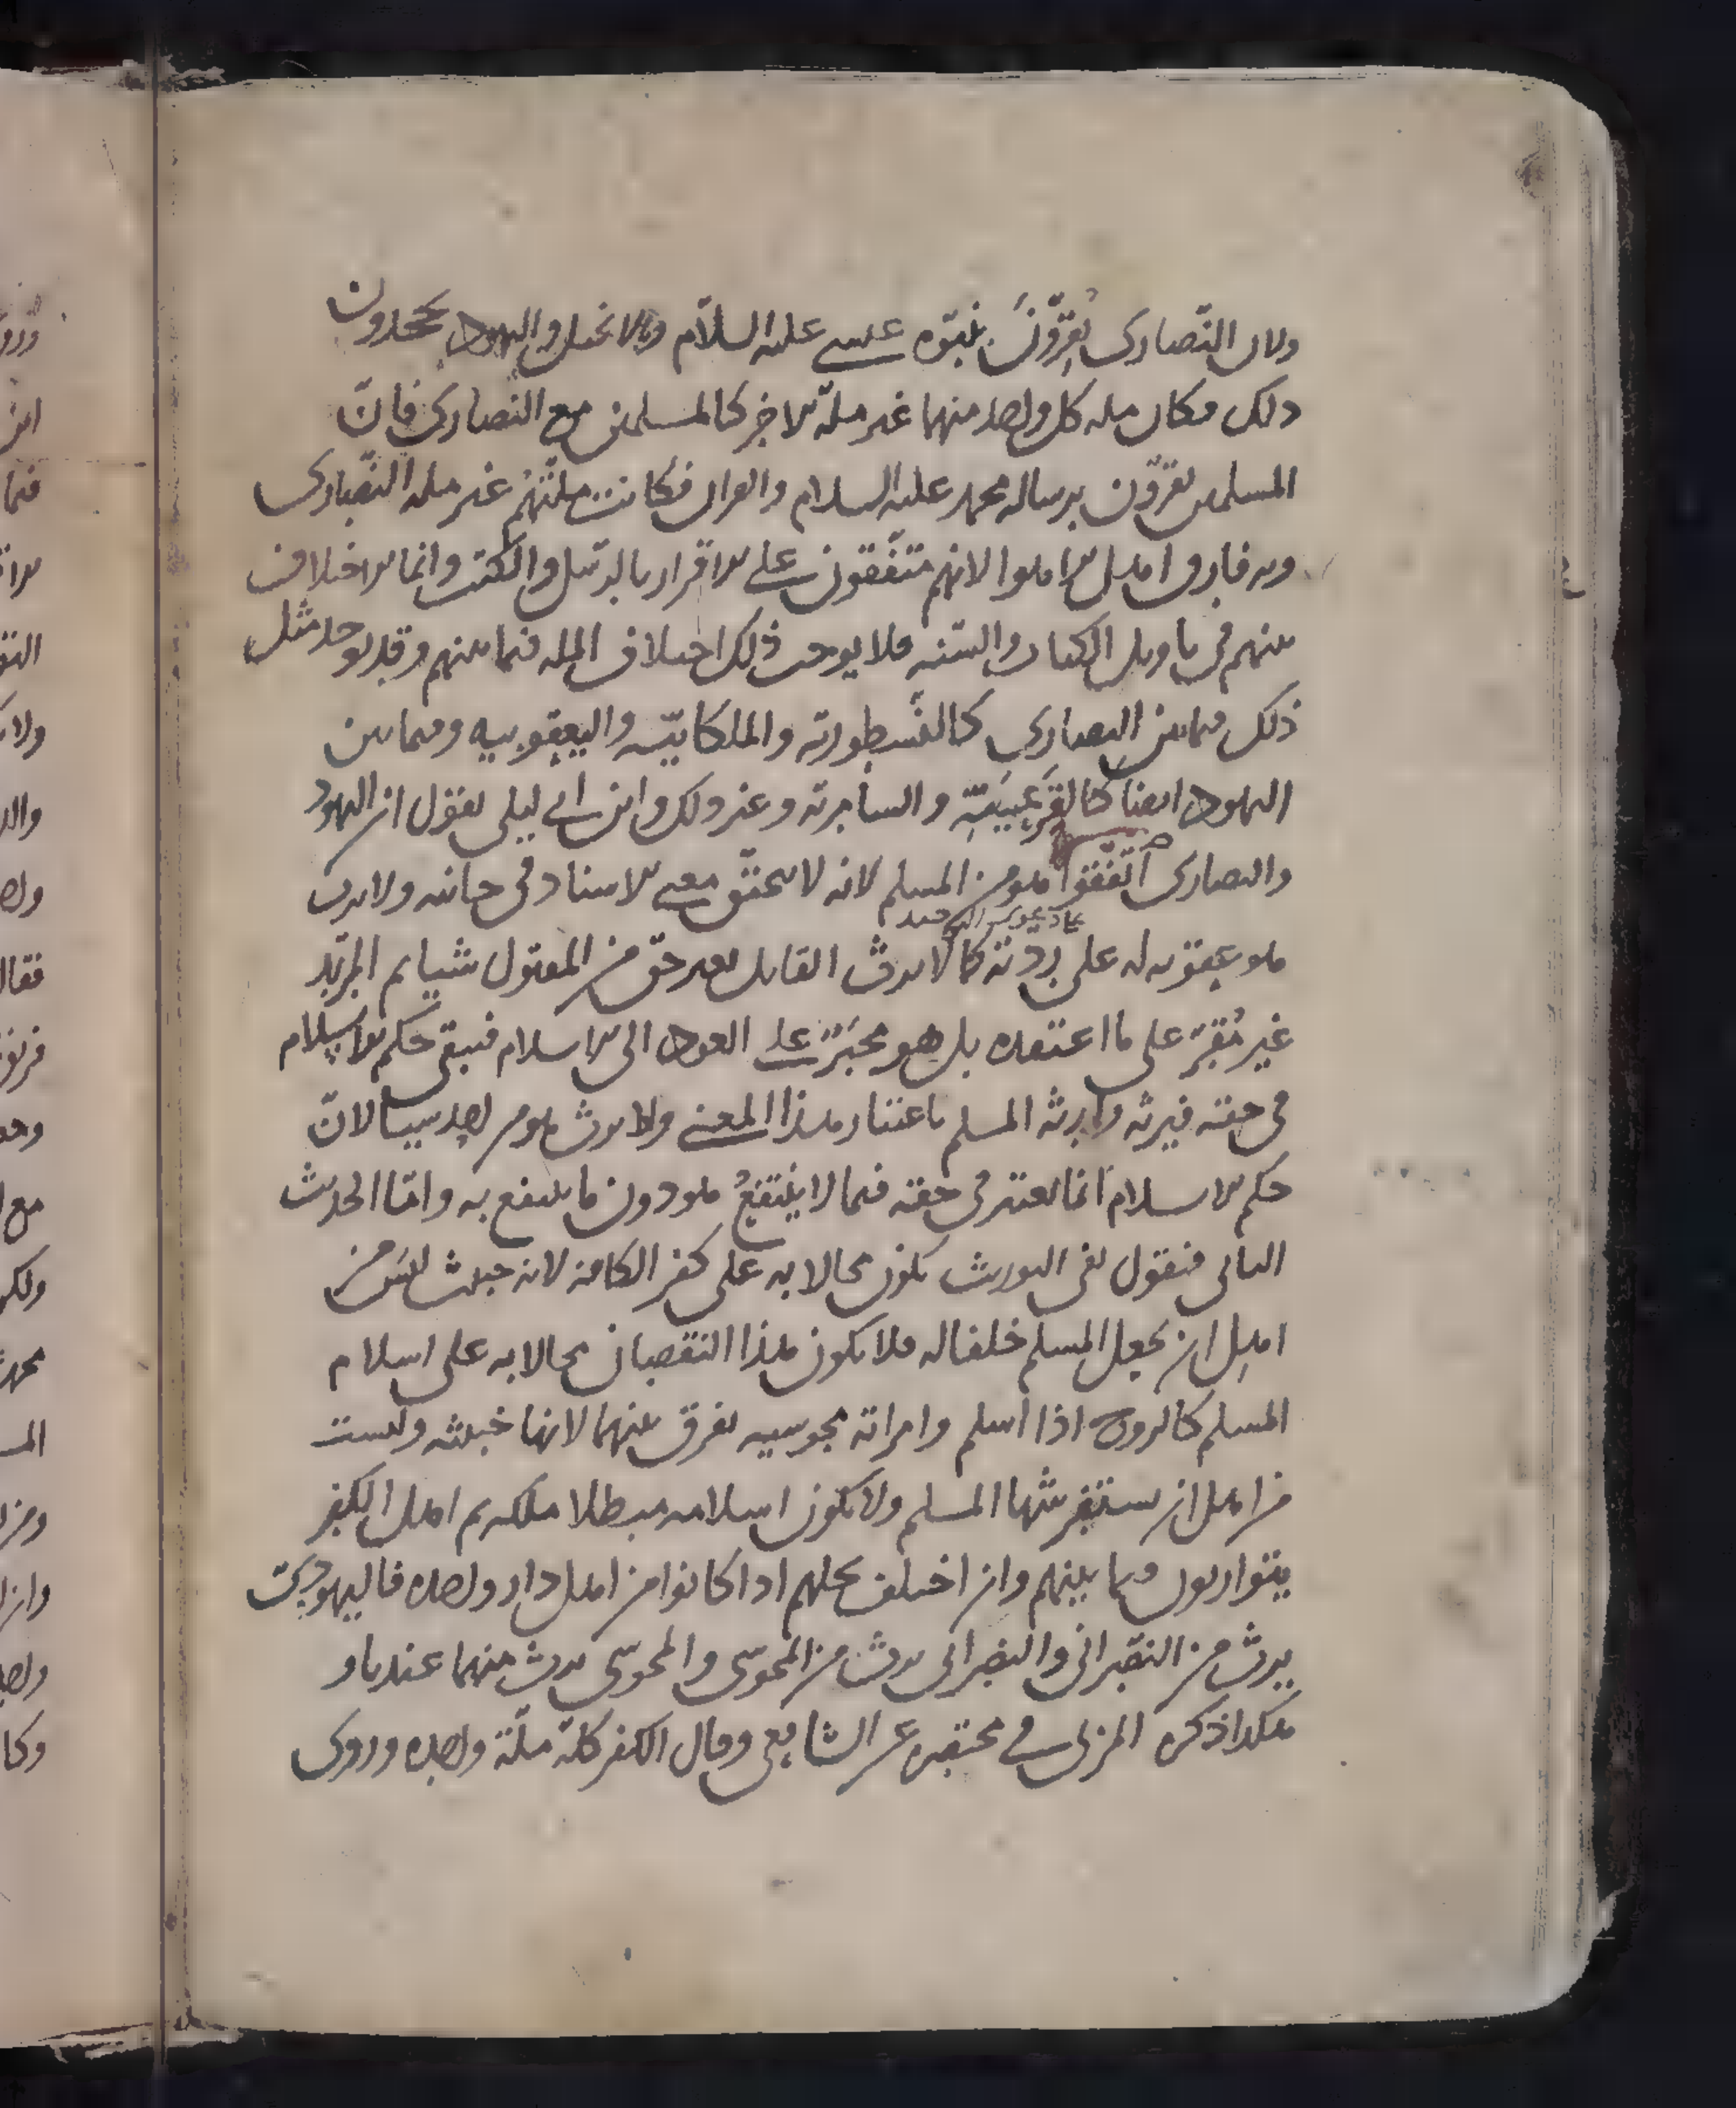 ولان النصارى يُقِرّونَ بنبوّه عيسى عليه السلام وبالانجيل واليهود يجحدون
ذلك فكان مله كل واحد منهما غير ملّة الاخر كالمسلمين مع النصارى فانّ
المسلمين يقرّون برساله محمد عليه السلام والقران فكانت ملّتهُم غير مله النصارى
وبه فارق اهل الاهوا لانهم متّفقون على الاقرار بالرسل والكتب وانما الاختلاف
بينهم في تاويل الكتاب والسّنه فلا يوجب ذلك اختلاف المله فيما بينهم وقد يوجد مثل
ذلك فيما بين النصارى كالنسطورية والملكانيّه واليعقوبيه وفيما بين
اليهود ايضا والسامرية وغير ذلك وابن ابي ليلى يقول ان اليهود
والنصارى اتّفقوا هو من المسلم لانه لا يتحقق معنى الاسناد في جانبه ولا يرث
هو عقوبه له على ردّته كما لا يرث القاتل بغير حق من المقتول شيا ثم المرتد
غير مُقَرّ على ما اعتقده بل هو مجبَرٌ على العود الى الاسلام فيبقى حكم الاسلام
في حقه فيرثه وارثه المسلم باعتبار هذا المعنى ولا يرث هو من احد شيا لانّ
حكم الاسلام انما يعتبر في حقه فيما لا ينتفعُ هو دون ما ينتفع به وامّا الحديث
الثاني فنقول نفى التوريث يكون محالا به على كفر الكافر لانه خبيث ليس من
اهل ان يجعل المسلم خلفا له فلا يكون هذا النقصان محالا به على اسلام
المسلم كالزوج اذا اسلم وامراته مجوسيه يفرق بينهما لانها خبيثه وليست
من اهل ان يستفرشها المسلم ولا يكون اسلامه مبطلا ملكه ثم اهل الكفر
يتوارثون فيما بينهم وان اختلف نحلهم اذا كانوا من اهل دار واحده فاليهوديّ
يرث من النصراني والنصراني يرث من المجوسي والمجوسي يرث منهما عندنا و
هكذا ذكره المزني في مختصره عن الشافعي وقال الكفر كلّه ملّة واحده وروى